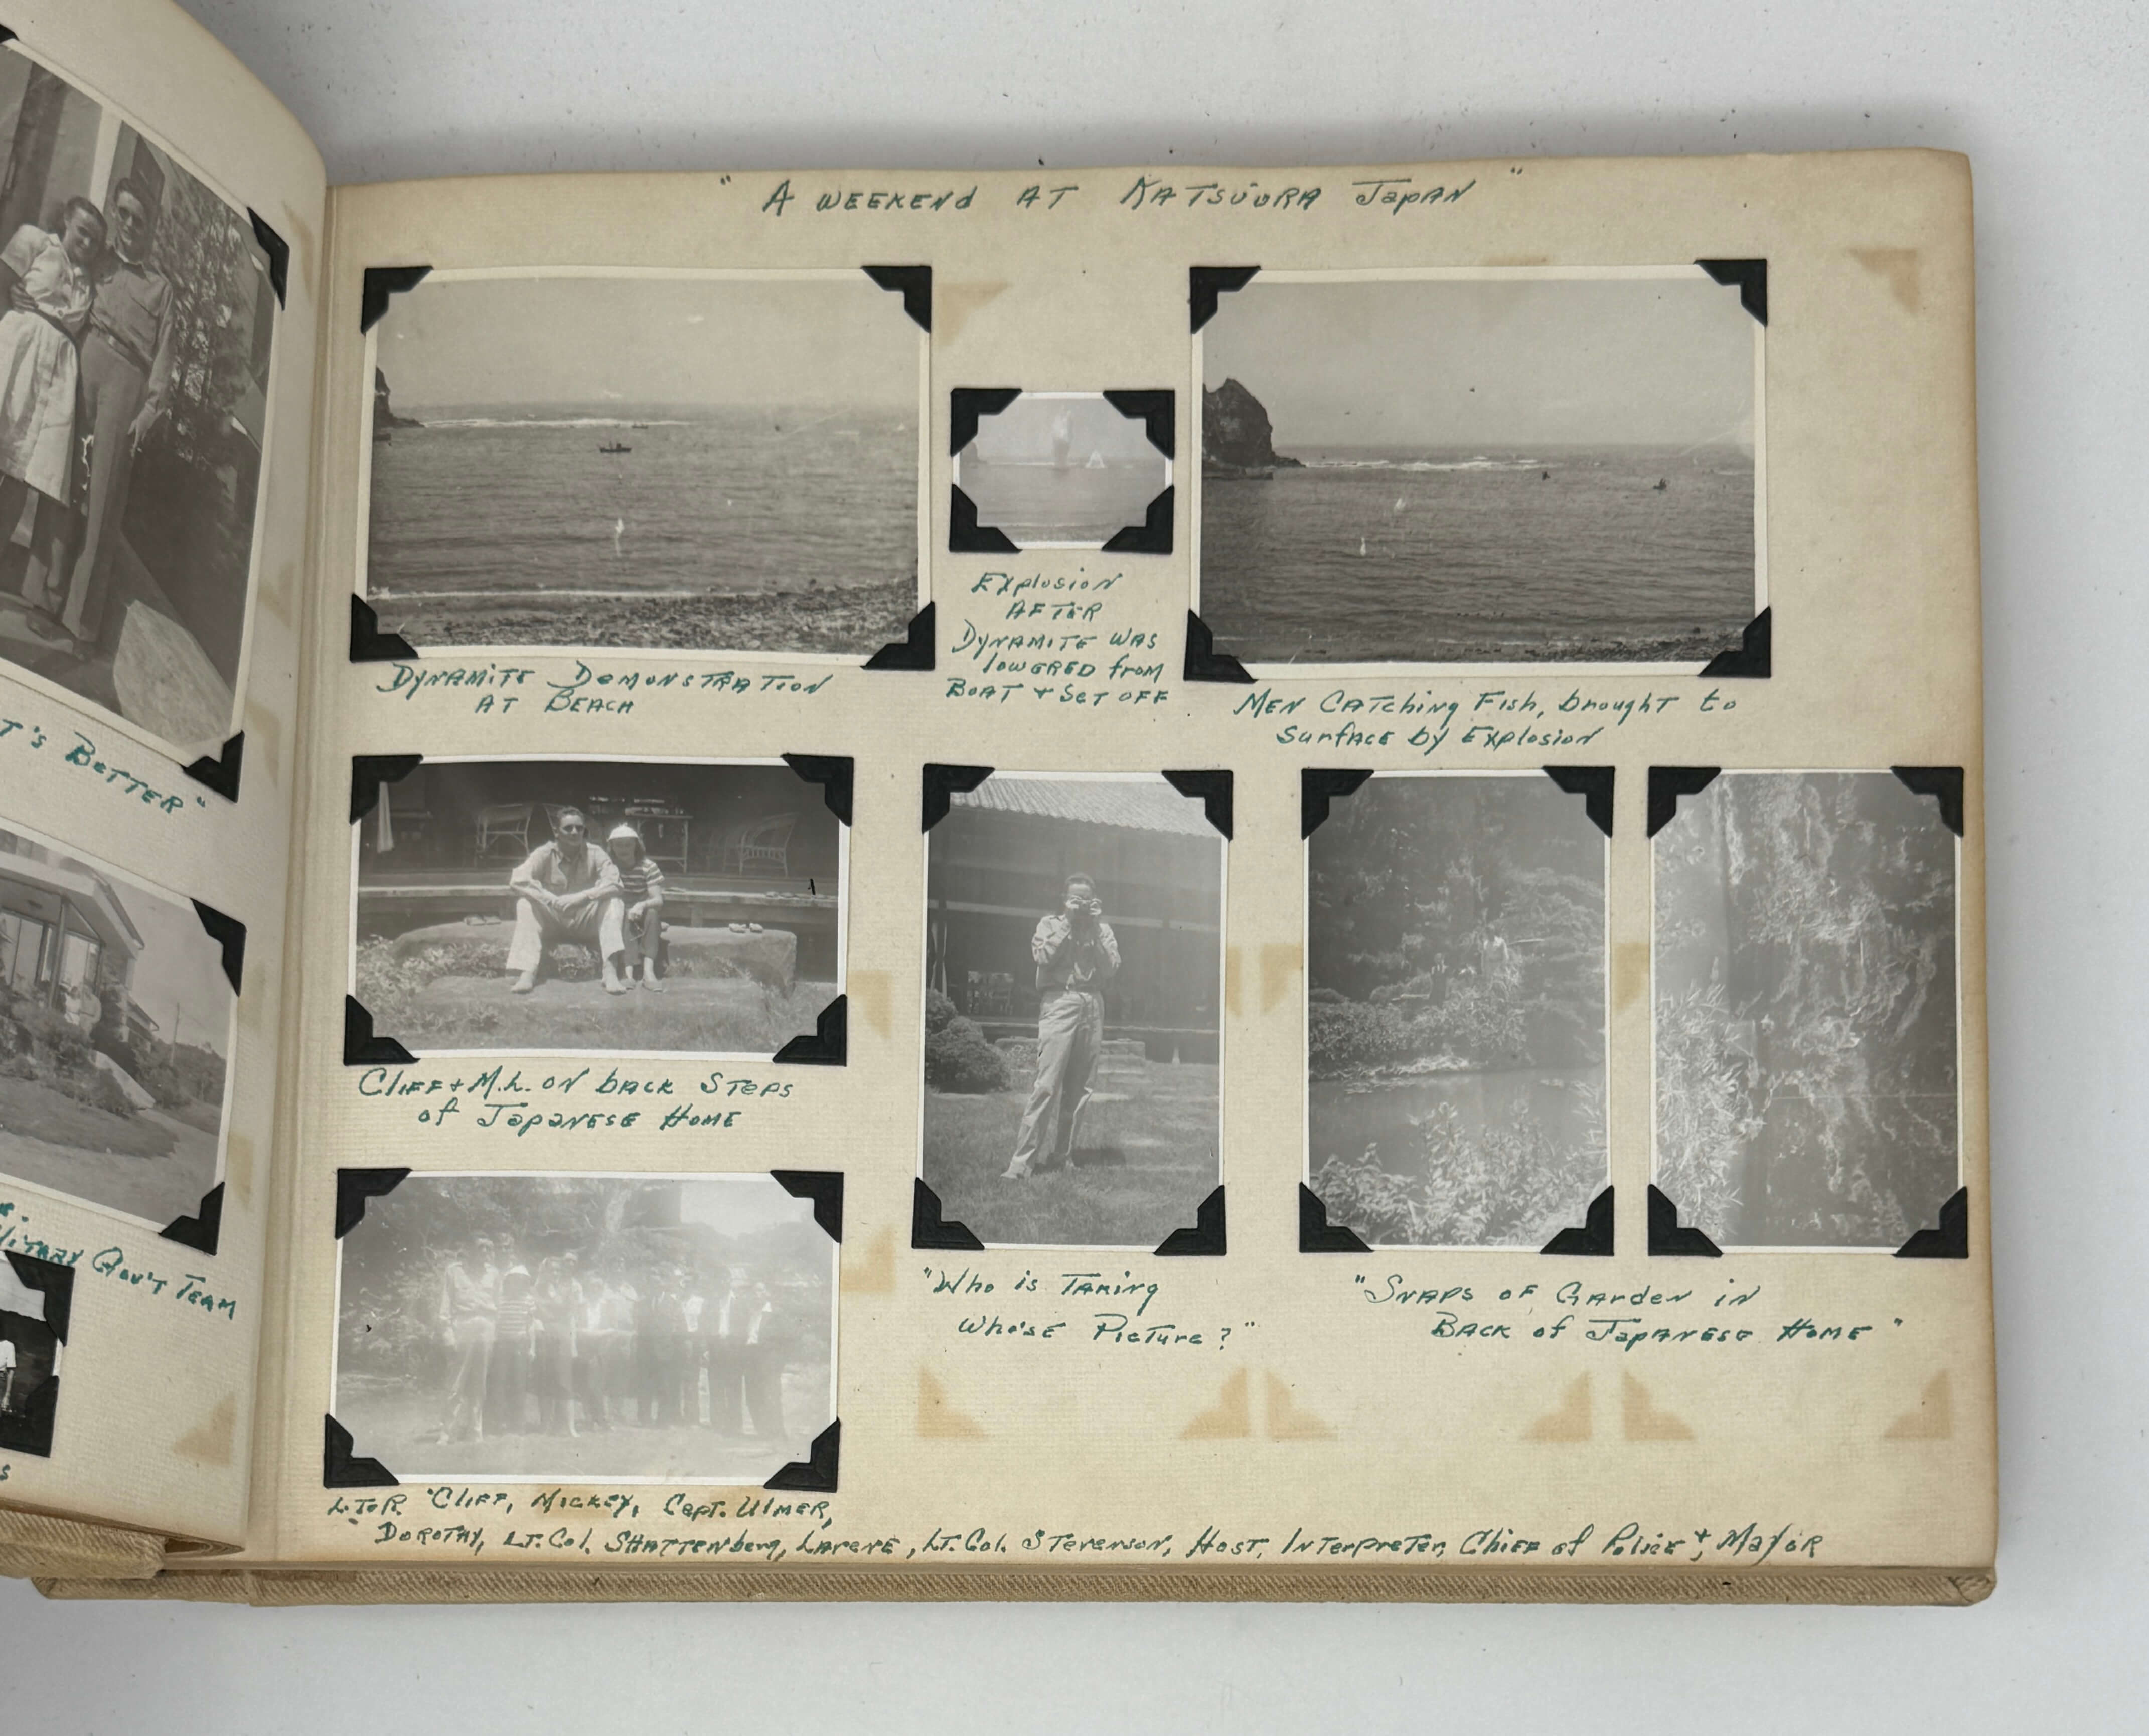 T'S BETTER"
S.
LITARY GOV'T TEAM
S
" A WEEKEND AT KATSUURA JAPAN "
DYNAMITE DEMONSTRATION
AT BEACH
EXPLOSION
AFTER
DYNAMITE WAS
LOWERED FROM
BOAT + SET OFF
MEN CATCHING FISH, BROUGHT TO
SURFACE BY EXPLOSION
CLIFF + M.L. ON BACK STEPS
OF JAPANESE HOME
"WHO IS TAKING
WHO'SE PICTURE?"
"SNAPS OF GARDEN IN
BACK OF JAPANESE HOME"
L. TO R. "CLIFF, MICKEY, CAPT. ULMER,
DOROTHY, LT. COL. SHATTENBERG, LAREVE, LT. COL. STEVENSON, HOST, INTERPRETER, CHIEF OF POLICE +, MAYOR